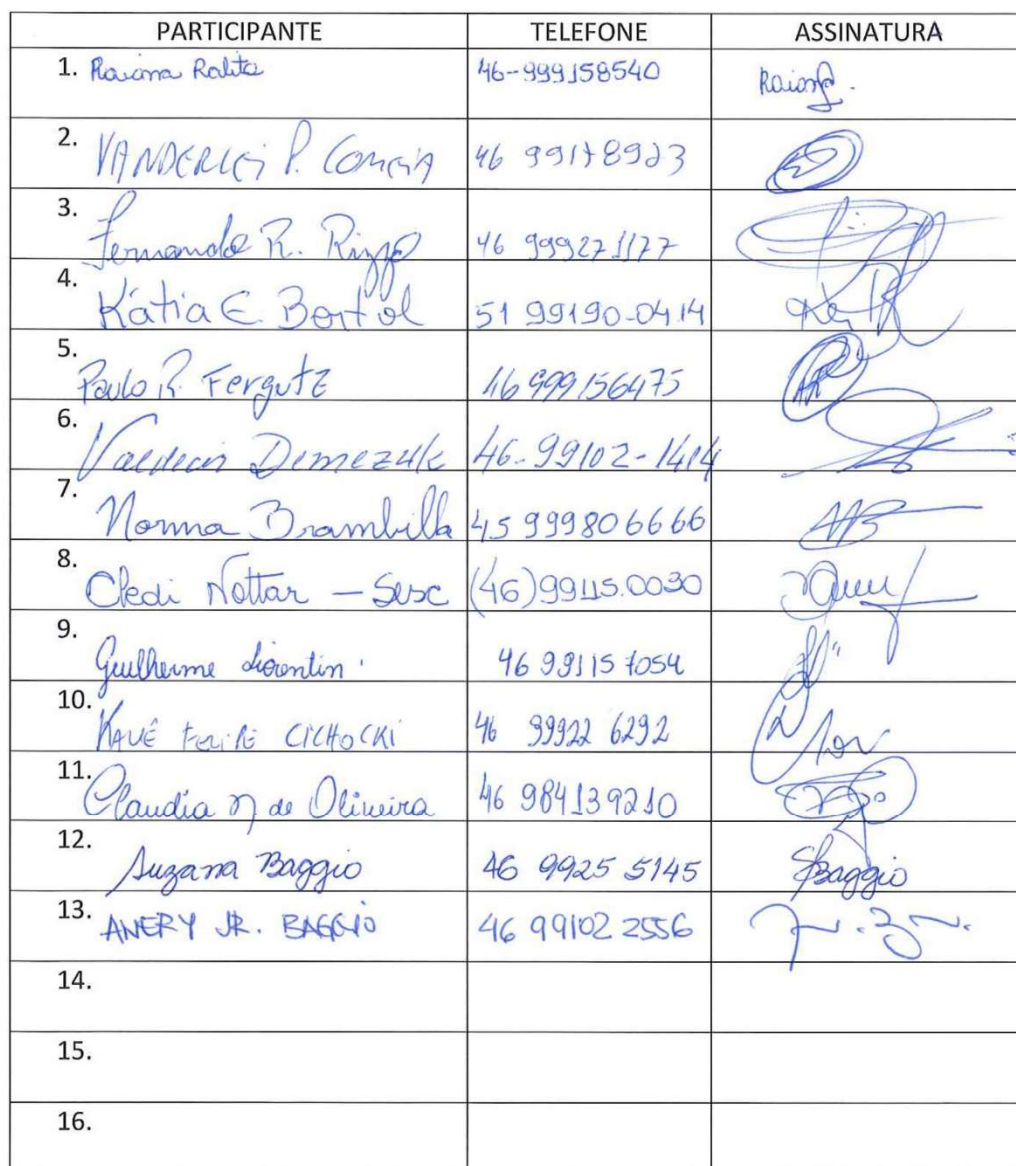 PARTICIPANTE TELEFONE ASSINATURA
1. Raiana Ralita 46-999158540 Raiana
2. VANDERLEI P. CORREIA 46 99178923
3. Fernando R. Rizzo 46 999271177
4. Kátia E. Bortol 51 99190-0414
5. Paulo R. Fergutz 46 999156475
6. Valdecir Demezuk 46-99102-1414
7. Norma Brambilla 45 999806666
8. Cledi Nottar - Sesc (46)99115.0030
9. Guilherme Liorentin 46 99115 7054
10. KAUÊ FELIPE CICHOCKI 46 99922 6292
11. Claudia M de Oliveira 46 984139210
12. Suzana Baggio 46 9925 5145 SBaggio
13. ANERY JR. BAGGIO 46 99102 2556
14.
15.
16.